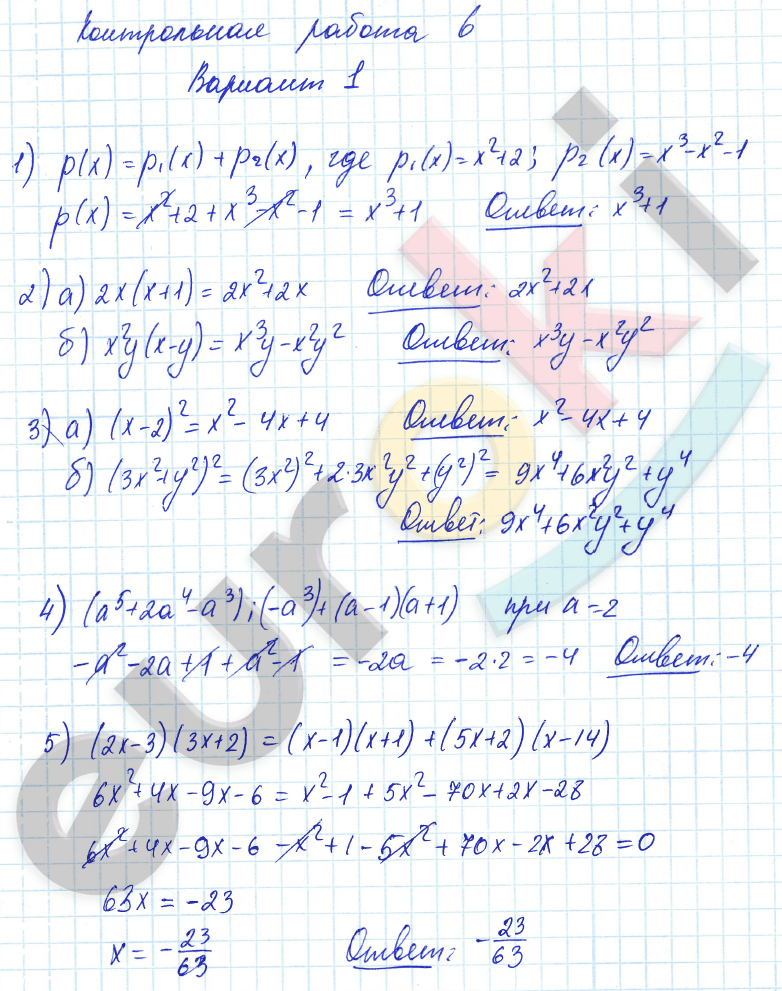 Контрольная работа 6
Вариант 1
1) p(x) = p₁(x) + p₂(x), где p₁(x) = x²+2; p₂(x) = x³-x²-1
p(x) = x²+2+x³-x²-1 = x³+1 Ответ: x³+1
2) а) 2x(x+1) = 2x²+2x Ответ: 2x²+2x
б) x²y(x-y) = x³y-x²y² Ответ: x³y-x²y²
3) а) (x-2)² = x²-4x+4 Ответ: x²-4x+4
б) (3x²+y²)² = (3x²)²+2·3x²y²+(y²)² = 9x⁴+6x²y²+y⁴
Ответ: 9x⁴+6x²y²+y⁴
4) (a⁵+2a⁴-a³):(-a³)+(a-1)(a+1) при a=2
-a²-2a+1+a²-1 = -2a = -2·2 = -4 Ответ: -4
5) (2x-3)(3x+2) = (x-1)(x+1)+(5x+2)(x-14)
6x²+4x-9x-6 = x²-1+5x²-70x+2x-28
6x²+4x-9x-6-x²+1-5x²+70x-2x+28=0
63x = -23
x = -23/63 Ответ: -23/63
euroki